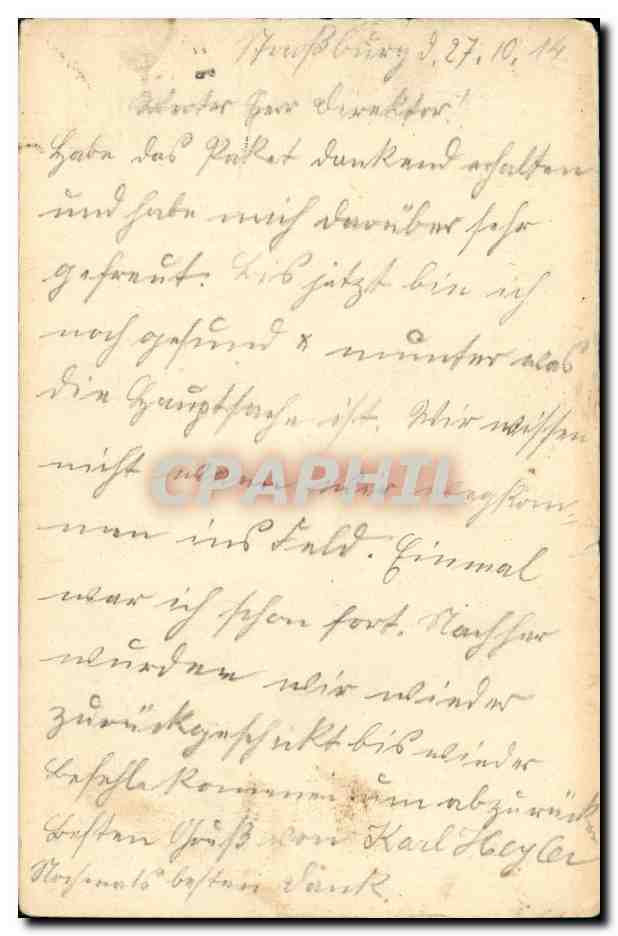 Straßburg d. 27. 10. 14
Werter Herr Direktor!
Habe das Paket dankend erhalten
und habe mich darüber sehr
gefreut. Bis jetzt bin ich
noch gesund & munter was
die Hauptsache ist. Wir wissen
nicht wann wir wegkom-
men ins Feld. Einmal
war ich schon fort. Nachher
wurden wir wieder
zurückgeschickt bis wieder
Befehle kommen um abzurücken
Besten Gruß von Karl Heyler
Nochmals besten Dank.
CPAPHIL